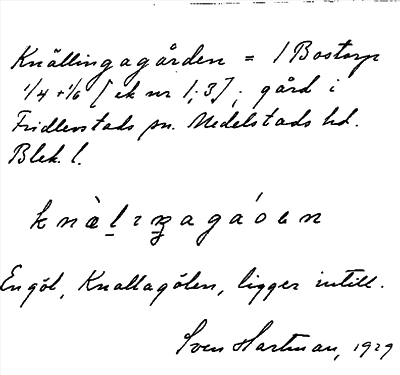 Knällingagården = 1 Bostorp
1/4 + 1/6 [ek nr 1, 3]; gård i
Fridlevstads sn. Medelstads hd.
Blek. l.
En göl, Knallagölen, ligger intill.
Sven Hartman, 1929